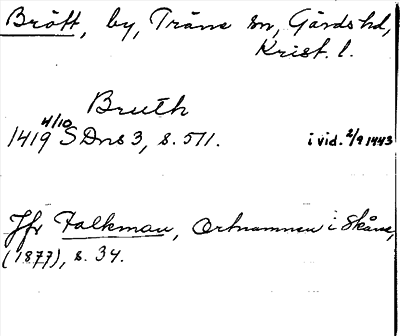 Brött, by, Träne sn, Gärds hd,
Krist. l.
Bruth
1419 4/10 SDns 3, s. 511. i vid. 2/9 1443
Jfr Falkman, Ortnamnen i Skåne,
(1877), s. 34.